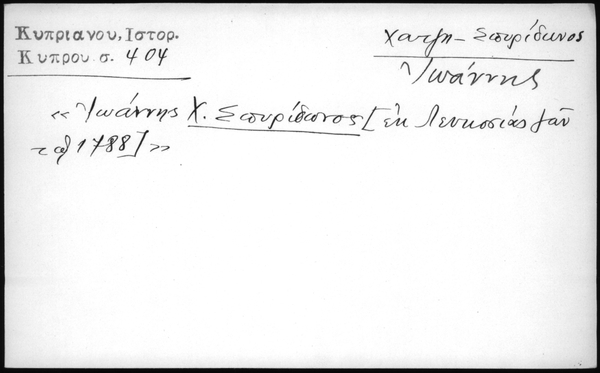 Κυπριανου, Ιστορ.
Κυπρου σ. 404
Χατζη-Σπυρίδωνος
Ἰωάννης
« Ἰωάννης Χ. Σπυρίδωνος [ἐκ Λευκοσίας
1788] »